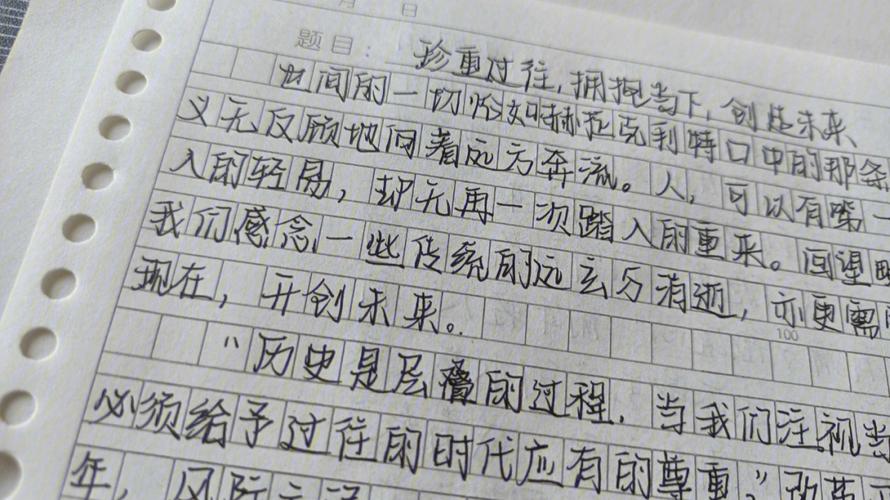 月 日
题目: 珍重过往,拥抱当下,创造未来
世间的一切恰如赫拉克利特口中的那条
义无反顾地向着远方奔流。人,可以有踏一
入的轻易,却无再一次踏入的重来。回望
我们感念一些传统的远去与消逝,亦更需
现在,开创未来。
100
“历史是层叠的过程,当我们注视当
必须给予过往的时代应有的尊重。”
年,风际